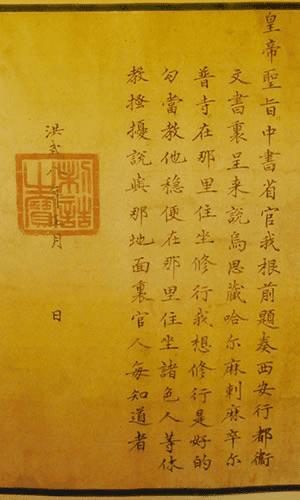 皇帝聖旨中書省官我根前題奏西安行都衛
文書裏呈来說烏思藏哈尔麻剌麻卒尔
普寺在那里住坐修行我想修行是好的
勾當教他穩便在那里住坐諸色人等休
教搔擾說與那地面裏官人每知道者
洪武八年 月 日